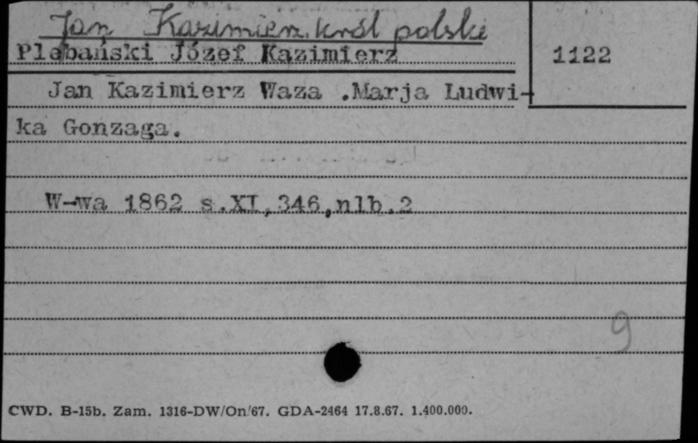 Jan Kazimierz, król polski
Plebański Józef Kazimierz
1122
Jan Kazimierz Waza .Marja Ludwi-
ka Gonzaga.
W-wa 1862 s.XI,346,nlb.2
9
CWD. B-15b. Zam. 1316-DW/On/67. GDA-2464 17.8.67. 1.400.000.